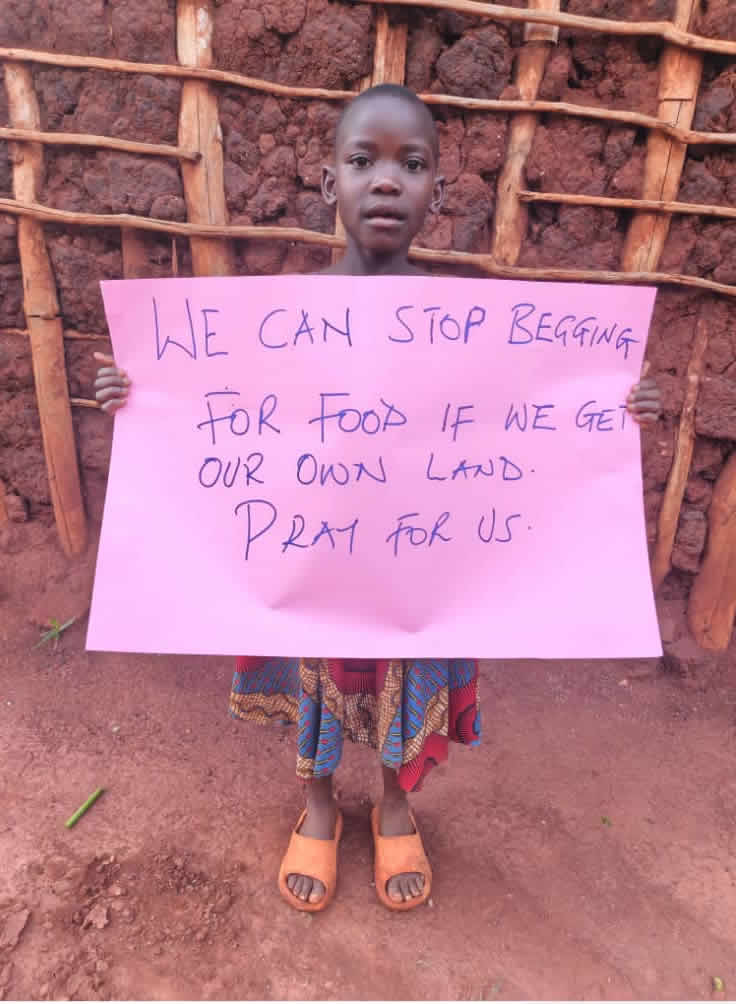 WE CAN STOP BEGGING
FOR FOOD IF WE GET
OUR OWN LAND.
PRAY FOR US.